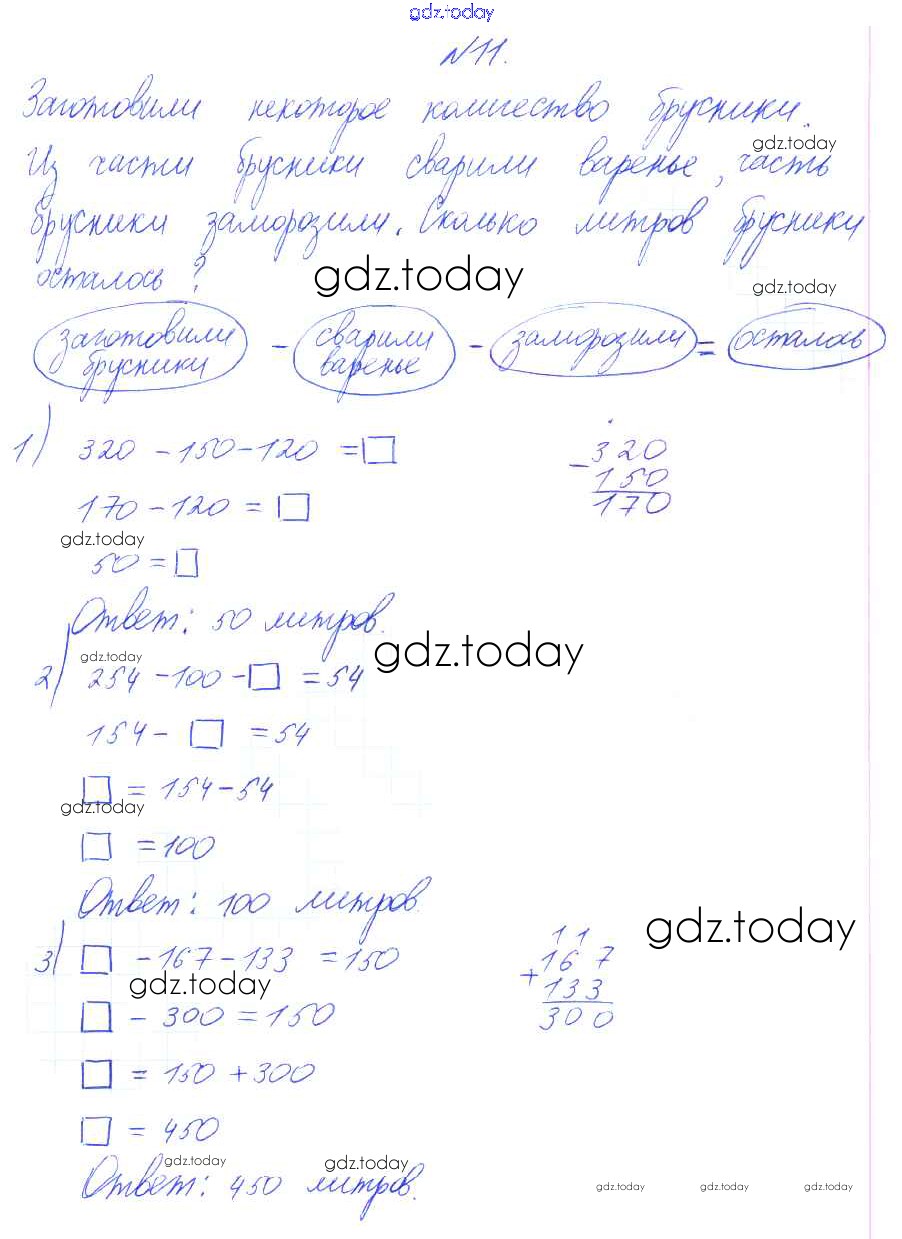 gdz.today
№11.
Заготовили некоторое количество брусники.
gdz.today
Из части брусники сварили варенье, часть
брусники заморозили. Сколько литров брусники
осталось?
gdz.today
gdz.today
заготовили брусники - сварили варенье - заморозили = осталось
1) 320 - 150 - 120 = □
320
- 150
170
170 - 120 = □
gdz.today
50 = □
Ответ: 50 литров.
gdz.today
gdz.today
2) 254 - 100 - □ = 54
154 - □ = 54
□ = 154 - 54
gdz.today
□ = 100
Ответ: 100 литров.
gdz.today
3) □ - 167 - 133 = 150
11
167
+ 133
300
gdz.today
□ - 300 = 150
□ = 150 + 300
□ = 450
gdz.today
gdz.today
Ответ: 450 литров.
gdz.today
gdz.today
gdz.today